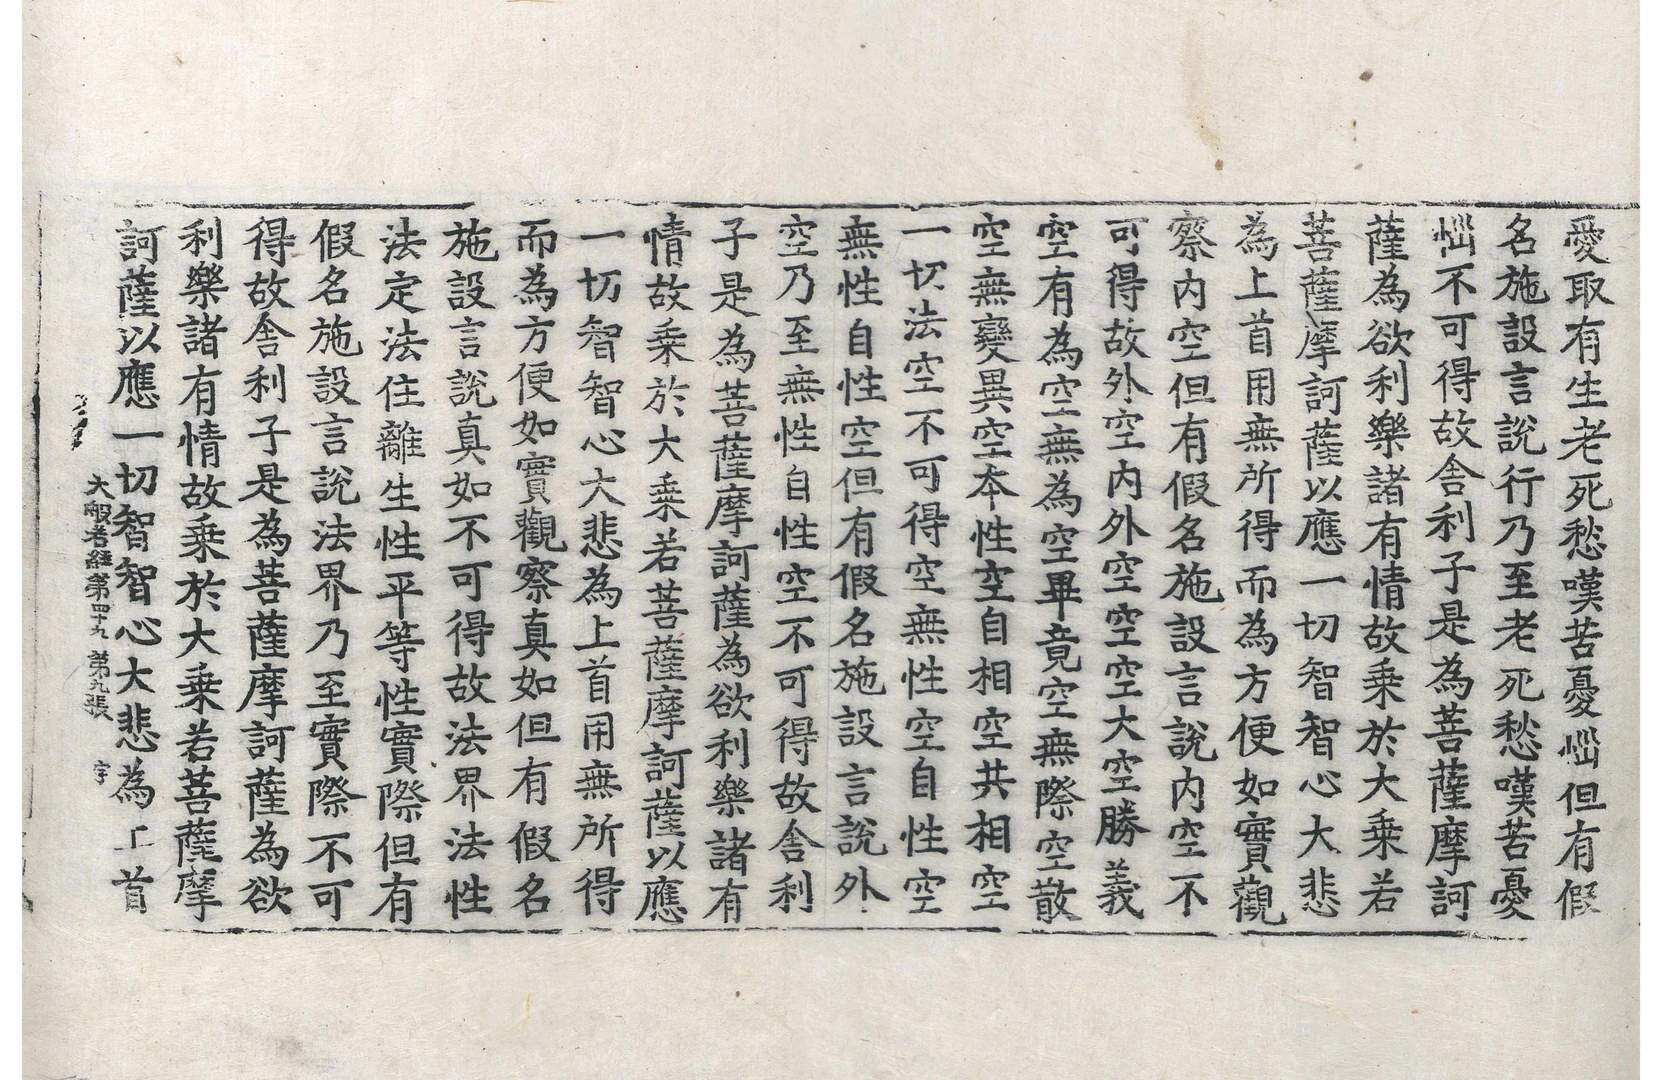 愛取有生老死愁嘆苦憂惱但有假
名施設言說行乃至老死愁嘆苦憂
惱不可得故舍利子是為菩薩摩訶
薩為欲利樂諸有情故乗於大乗若
菩薩摩訶薩以應一切智智心大悲
為上首用無所得而為方便如實觀
察內空但有假名施設言說內空不
可得故外空內外空空空大空勝義
空有為空無為空畢竟空無際空散
空無變異空本性空自相空共相空
一切法空不可得空無性空自性空
無性自性空但有假名施設言說外
空乃至無性自性空不可得故舍利
子是為菩薩摩訶薩為欲利樂諸有
情故乗於大乗若菩薩摩訶薩以應
一切智智心大悲為上首用無所得
而為方便如實觀察真如但有假名
施設言說真如不可得故法界法性
法定法住離生性平等性實際但有
假名施設言說法界乃至實際不可
得故舍利子是為菩薩摩訶薩為欲
利樂諸有情故乗於大乗若菩薩摩
訶薩以應一切智智心大悲為上首
大般若經第四十九 第九張 宇